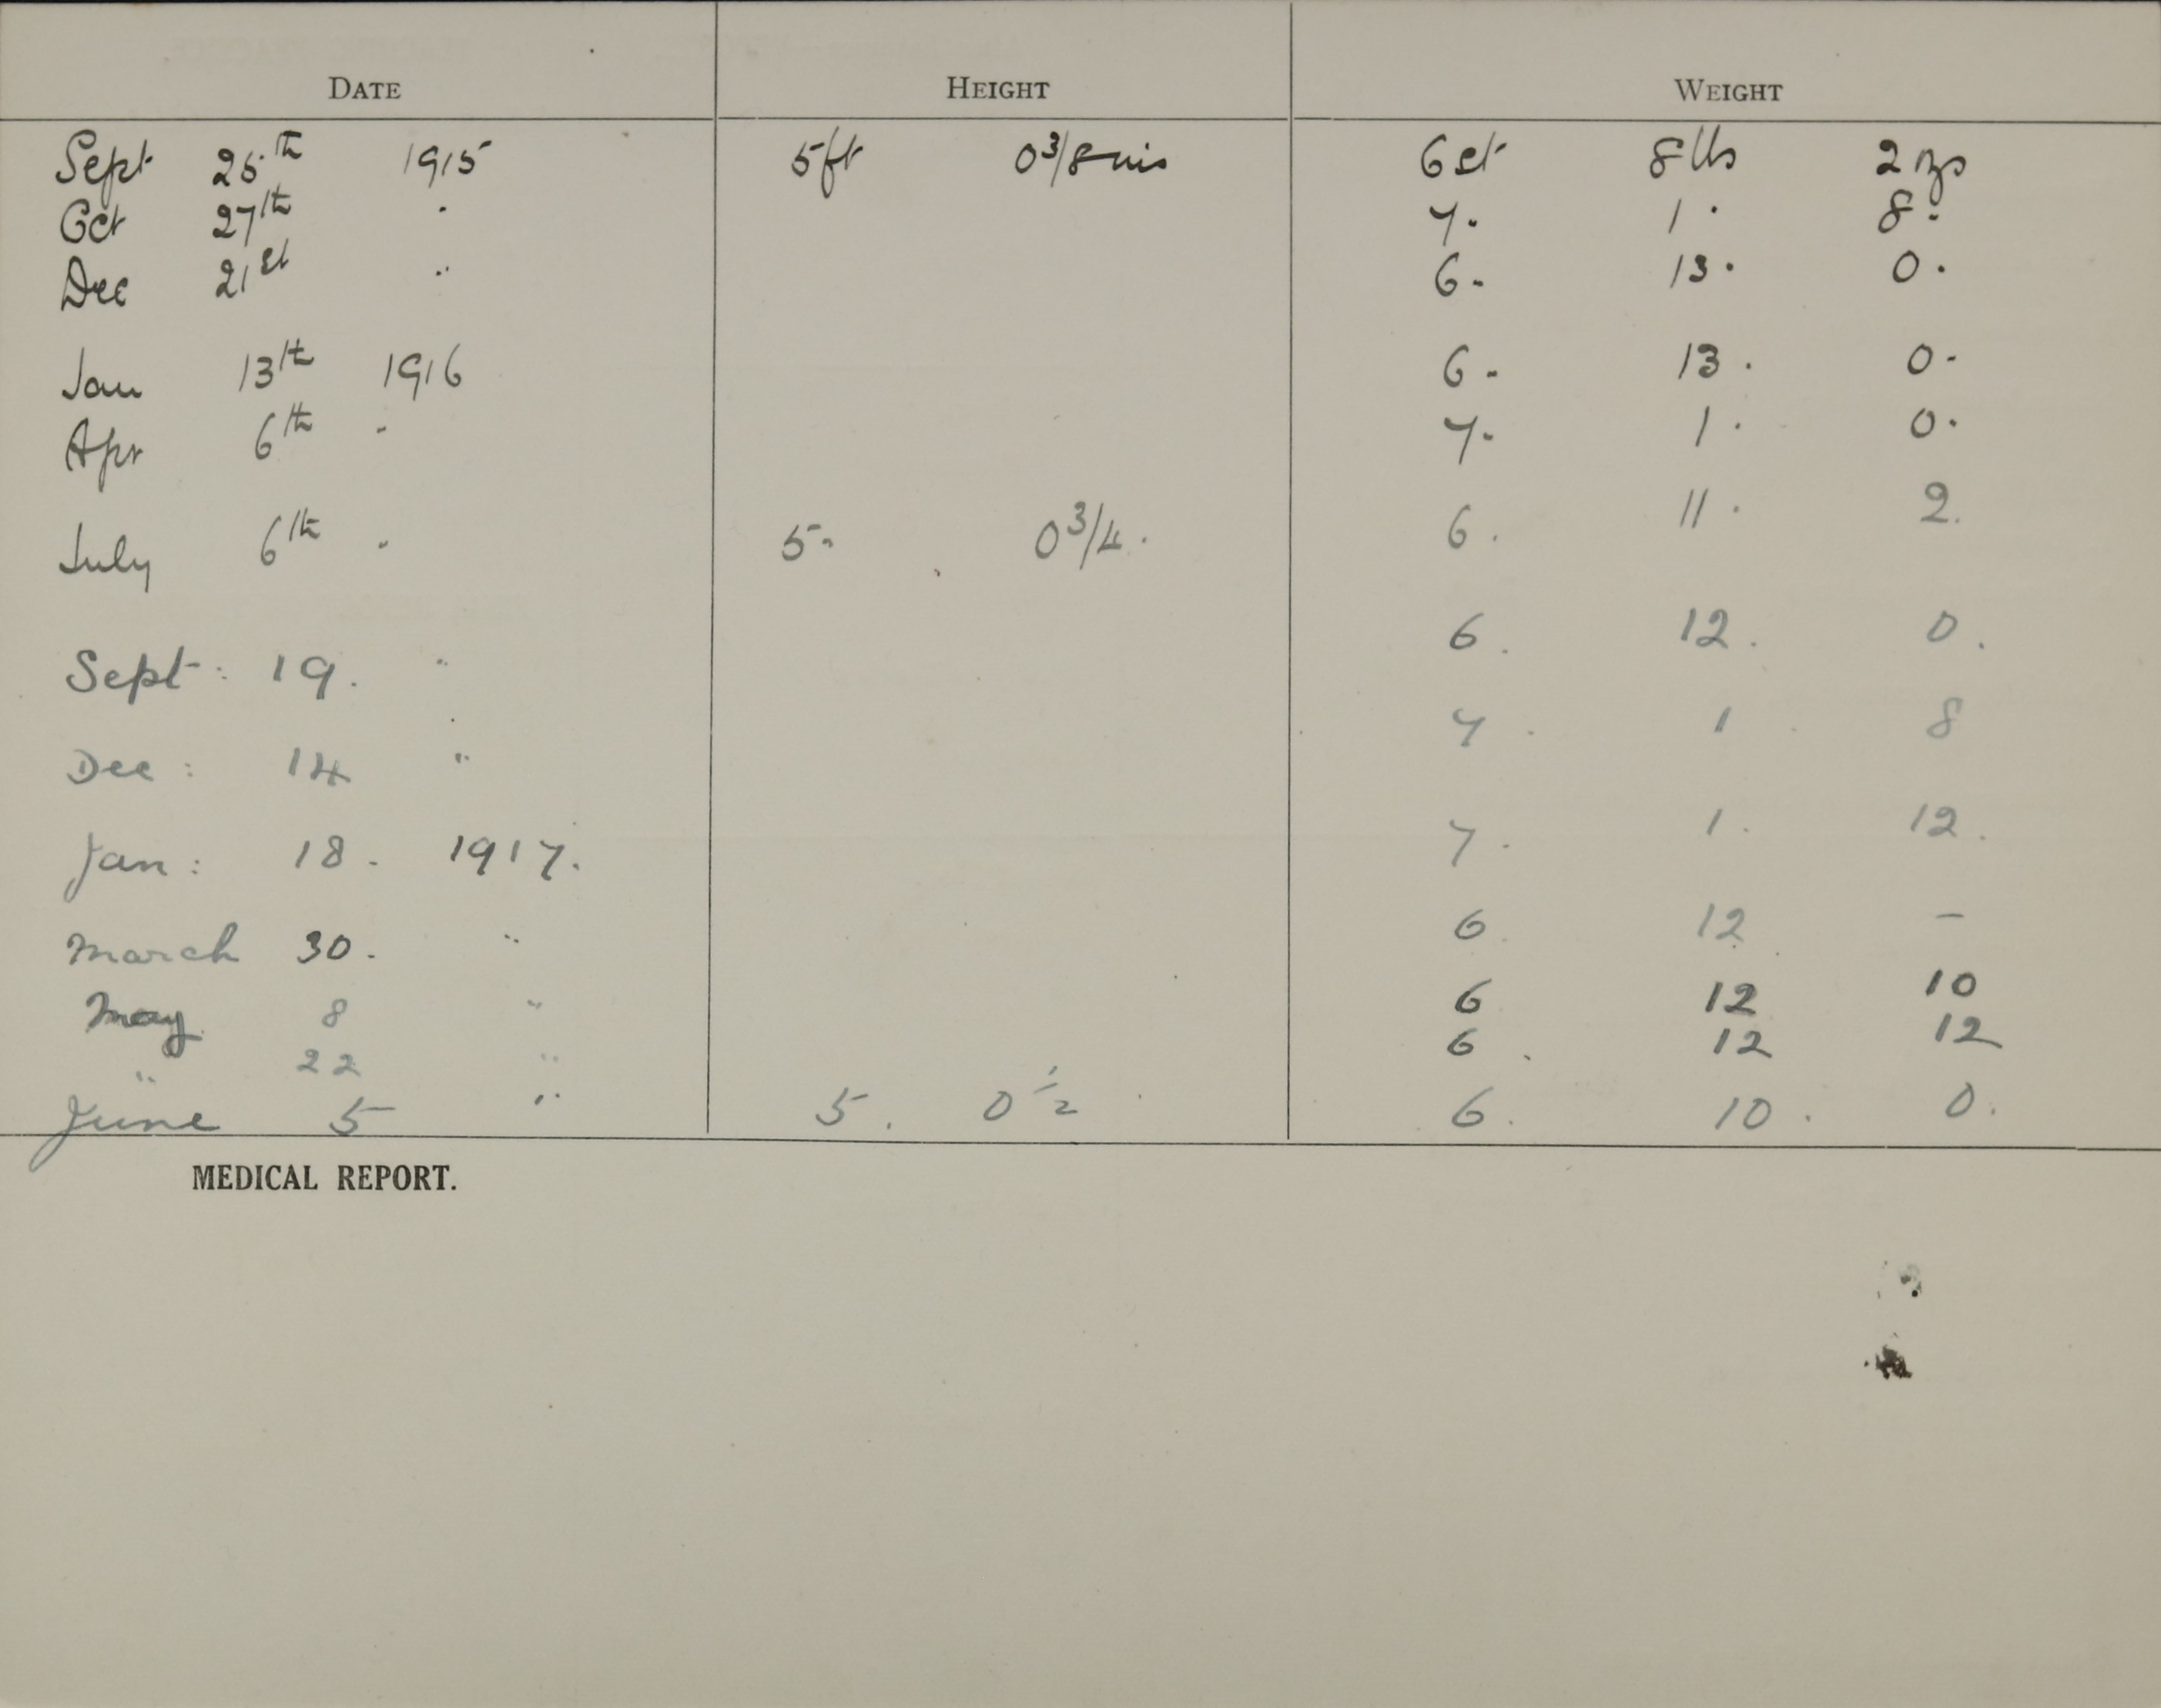 DATE HEIGHT WEIGHT
Sept 25th 1915 5ft 0 3/8 ins 6 st 8 lbs 2 ozs
Oct 27th " 7. 1. 8.
Dec 21st " 6. 13. 0.
Jan 13th 1916 6. 13. 0.
Apr 6th " 7. 1. 0.
July 6th " 5. 0 3/4. 6. 11. 2.
Sept: 19. " 6. 12. 0.
Dec: 14 " 7. 1 8
Jan: 18. 1917. 7. 1. 12.
March 30. " 6. 12 –
May 8 " 6 12 10
" 22 " 6. 12 12
June 5 " 5. 0 1/2 6. 10. 0.
MEDICAL REPORT.